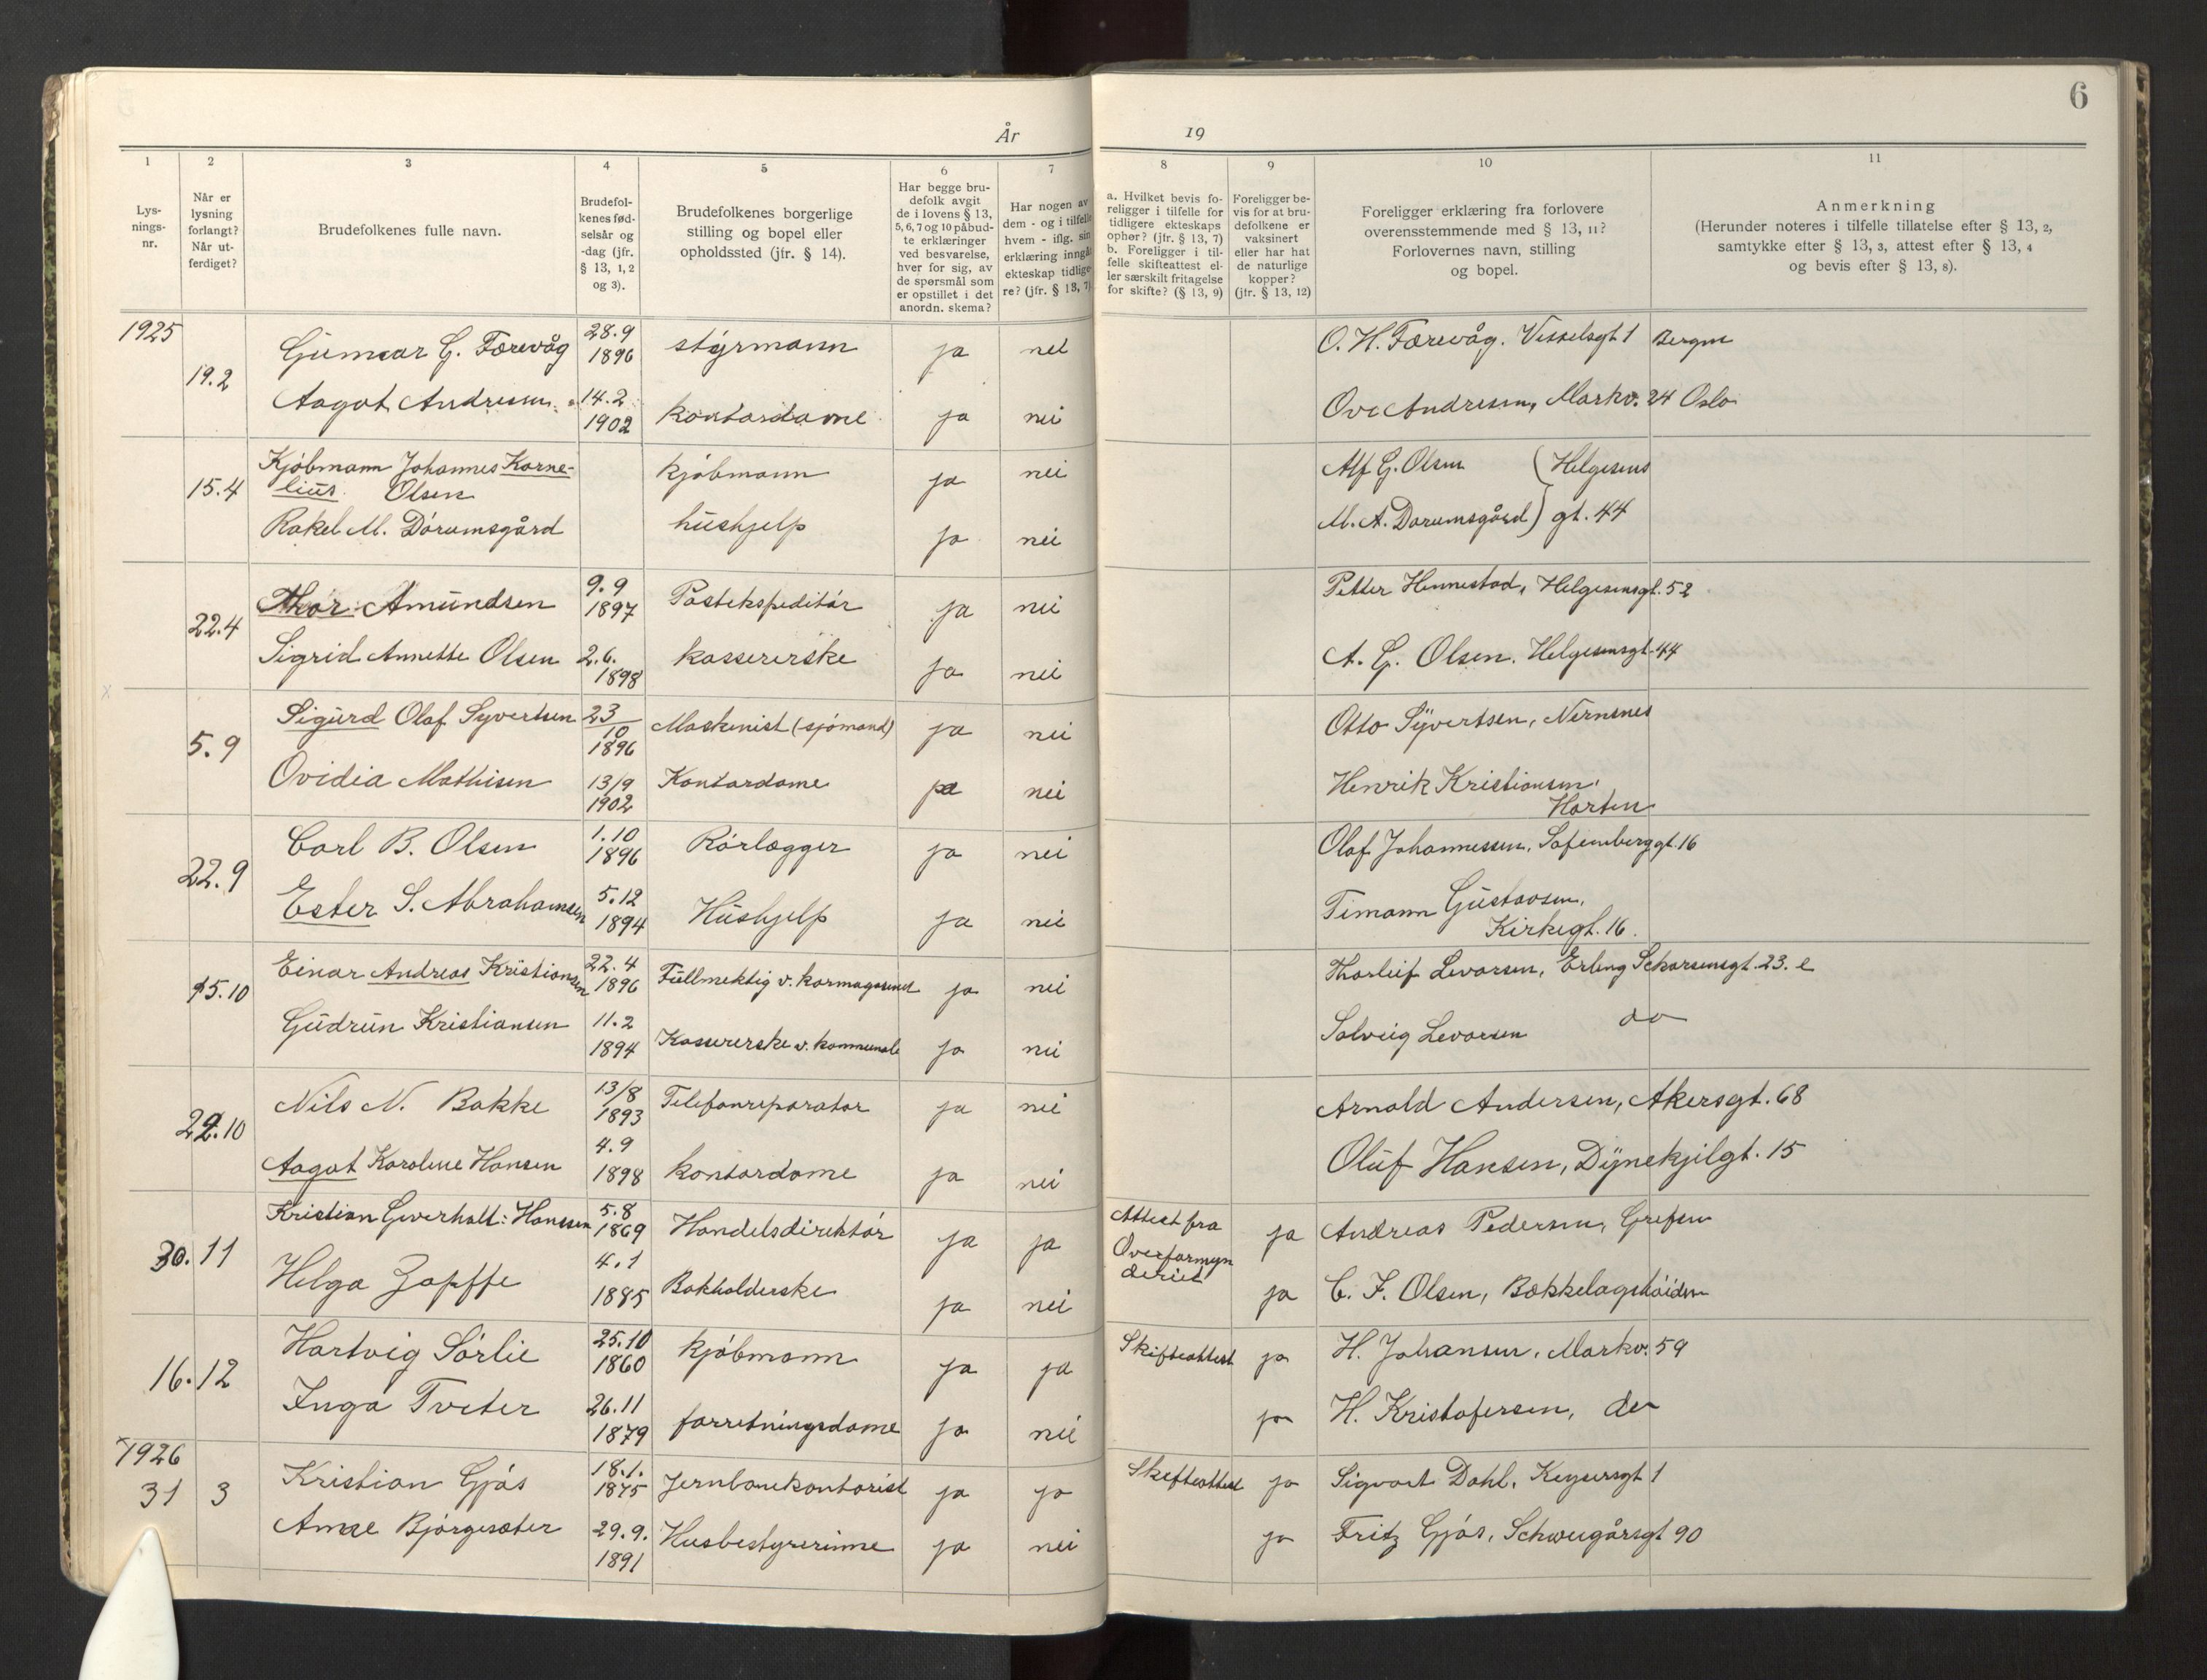 6
År 19
1 2 3 4 5 6 7 8 9 10 11
Lys-
nings-
nr.
Når er
lysning
forlangt?
Når ut-
ferdiget?
Brudefolkenes fulle navn.
Brudefol-
kenes fød-
selsår og
-dag (jfr.
§ 13, 1, 2
og 3).
Brudefolkenes borgerlige
stilling og bopel eller
opholdssted (jfr. § 14).
Har begge bru-
defolk avgit
de i lovens § 13,
5, 6, 7 og 10 påbud-
te erklæringer
ved besvarelse,
hver for sig, av
de spørsmål som
er opstillet i det
anordn. skema?
Har nogen av
dem - og i tilfelle
hvem - iflg. sin
erklæring inngåt
ekteskap tidlige-
re? (jfr. § 13, 7)
a. Hvilket bevis fo-
religger i tilfelle for
tidligere ekteskaps
ophør? (jfr. § 13, 7)
b. Foreligger i til-
felle skifteattest el-
ler særskilt fritagelse
for skifte? (§ 13, 9)
Foreligger be-
vis for at bru-
defolkene er
vaksinert
eller har hat
de naturlige
kopper?
(jfr. § 13, 12)
Foreligger erklæring fra forlovere
overensstemmende med § 13, 11?
Forlovernes navn, stilling
og bopel.
Anmerkning
(Herunder noteres i tilfelle tillatelse efter § 13, 2,
samtykke efter § 13, 3, attest efter § 13, 4
og bevis efter § 13, 8).
1925
19.2 Gunnar G. Færevåg 28.9 1896 styrmann ja nei O. H. Færevåg. Vesselsgt 1 Bergen
Aagot Andresen 14.2 1902 kontordame ja nei Ove Andresen, Markv. 24 Oslo
15.4 Kjøbmann Johannes Korne-
lius Olsen kjøbmann ja nei Alf G. Olsen (Helgesens
Rakel M. Dórumsgård hushjelp ja nei M. A. Dorumsgård) gt. 44
22.4 Thor Amundsen 9.9 1897 Postekspeditór ja nei Petter Hennestad, Helgesensgt. 52
Sigrid Annette Olsen 2.6. 1898 kassererske ja nei A. G. Olsen. Helgesensgt. 44
5.9 Sigurd Olaf Syvertsen 23/10 1896 Maskinist (sjómand) ja nei Otto Syvertsen, Nærsnes
Ovidia Mathisen 13/9 1902 Kontordame ja nei Henrik Kristiansen
Horten
22.9 Carl B. Olsen 1.10 1896 Rórlægger ja nei Olaf Johannessen, Sofienberggt. 16
Ester S. Abrahamsen 5.12 1894 Hushjelp ja nei Timann Gustavsen,
Kirkegt. 16.
15.10 Einar Andreas Kristiansen 22.4 1896 Fullmektig v. kornmagasinet ja nei Thorleif Levorsen, Erling Skarsensgt. 23. e
Gudrun Kristiansen 11.2 1894 Kassererske v. kommunale ja nei Solveig Levorsen do
22.10 Nils N. Bakke 13/8 1893 Telefonreparatør ja nei Arnold Andersen, Akersgt. 68
Aagot Karoline Hansen 4.9 1898 kontordame ja nei Oluf Hansen, Dynekjilgt. 15
30.11 Kristian Geverhalt: Hanssen 5.8 1869 Handelsdirektór ja ja Attest fra
Overformyn
deriet ja Andreas Pedersen, Grefsen
Helga Zapffe 4.1 1885 Bokholderske ja nei ja C. F. Olsen, Bækkelagshóiden
16.12 Hartvig Sórlie 25.10 1860 kjóbmann ja ja Skifteattest ja H. Johansen, Markv. 59
Inga Tveter 26.11 1879 forretningsdame ja nei ja H. Kristofersen, do
1926
31 3 Kristian Gjós 18.1. 1875 Jernbanekontorist ja ja Skifteattest ja Sigvart Dahl. Keysersgt 1
Anne Bjórgesæter 29.9. 1891 Husbestyrerinne ja nei ja Fritz Gjós, Schweigårsgt 90